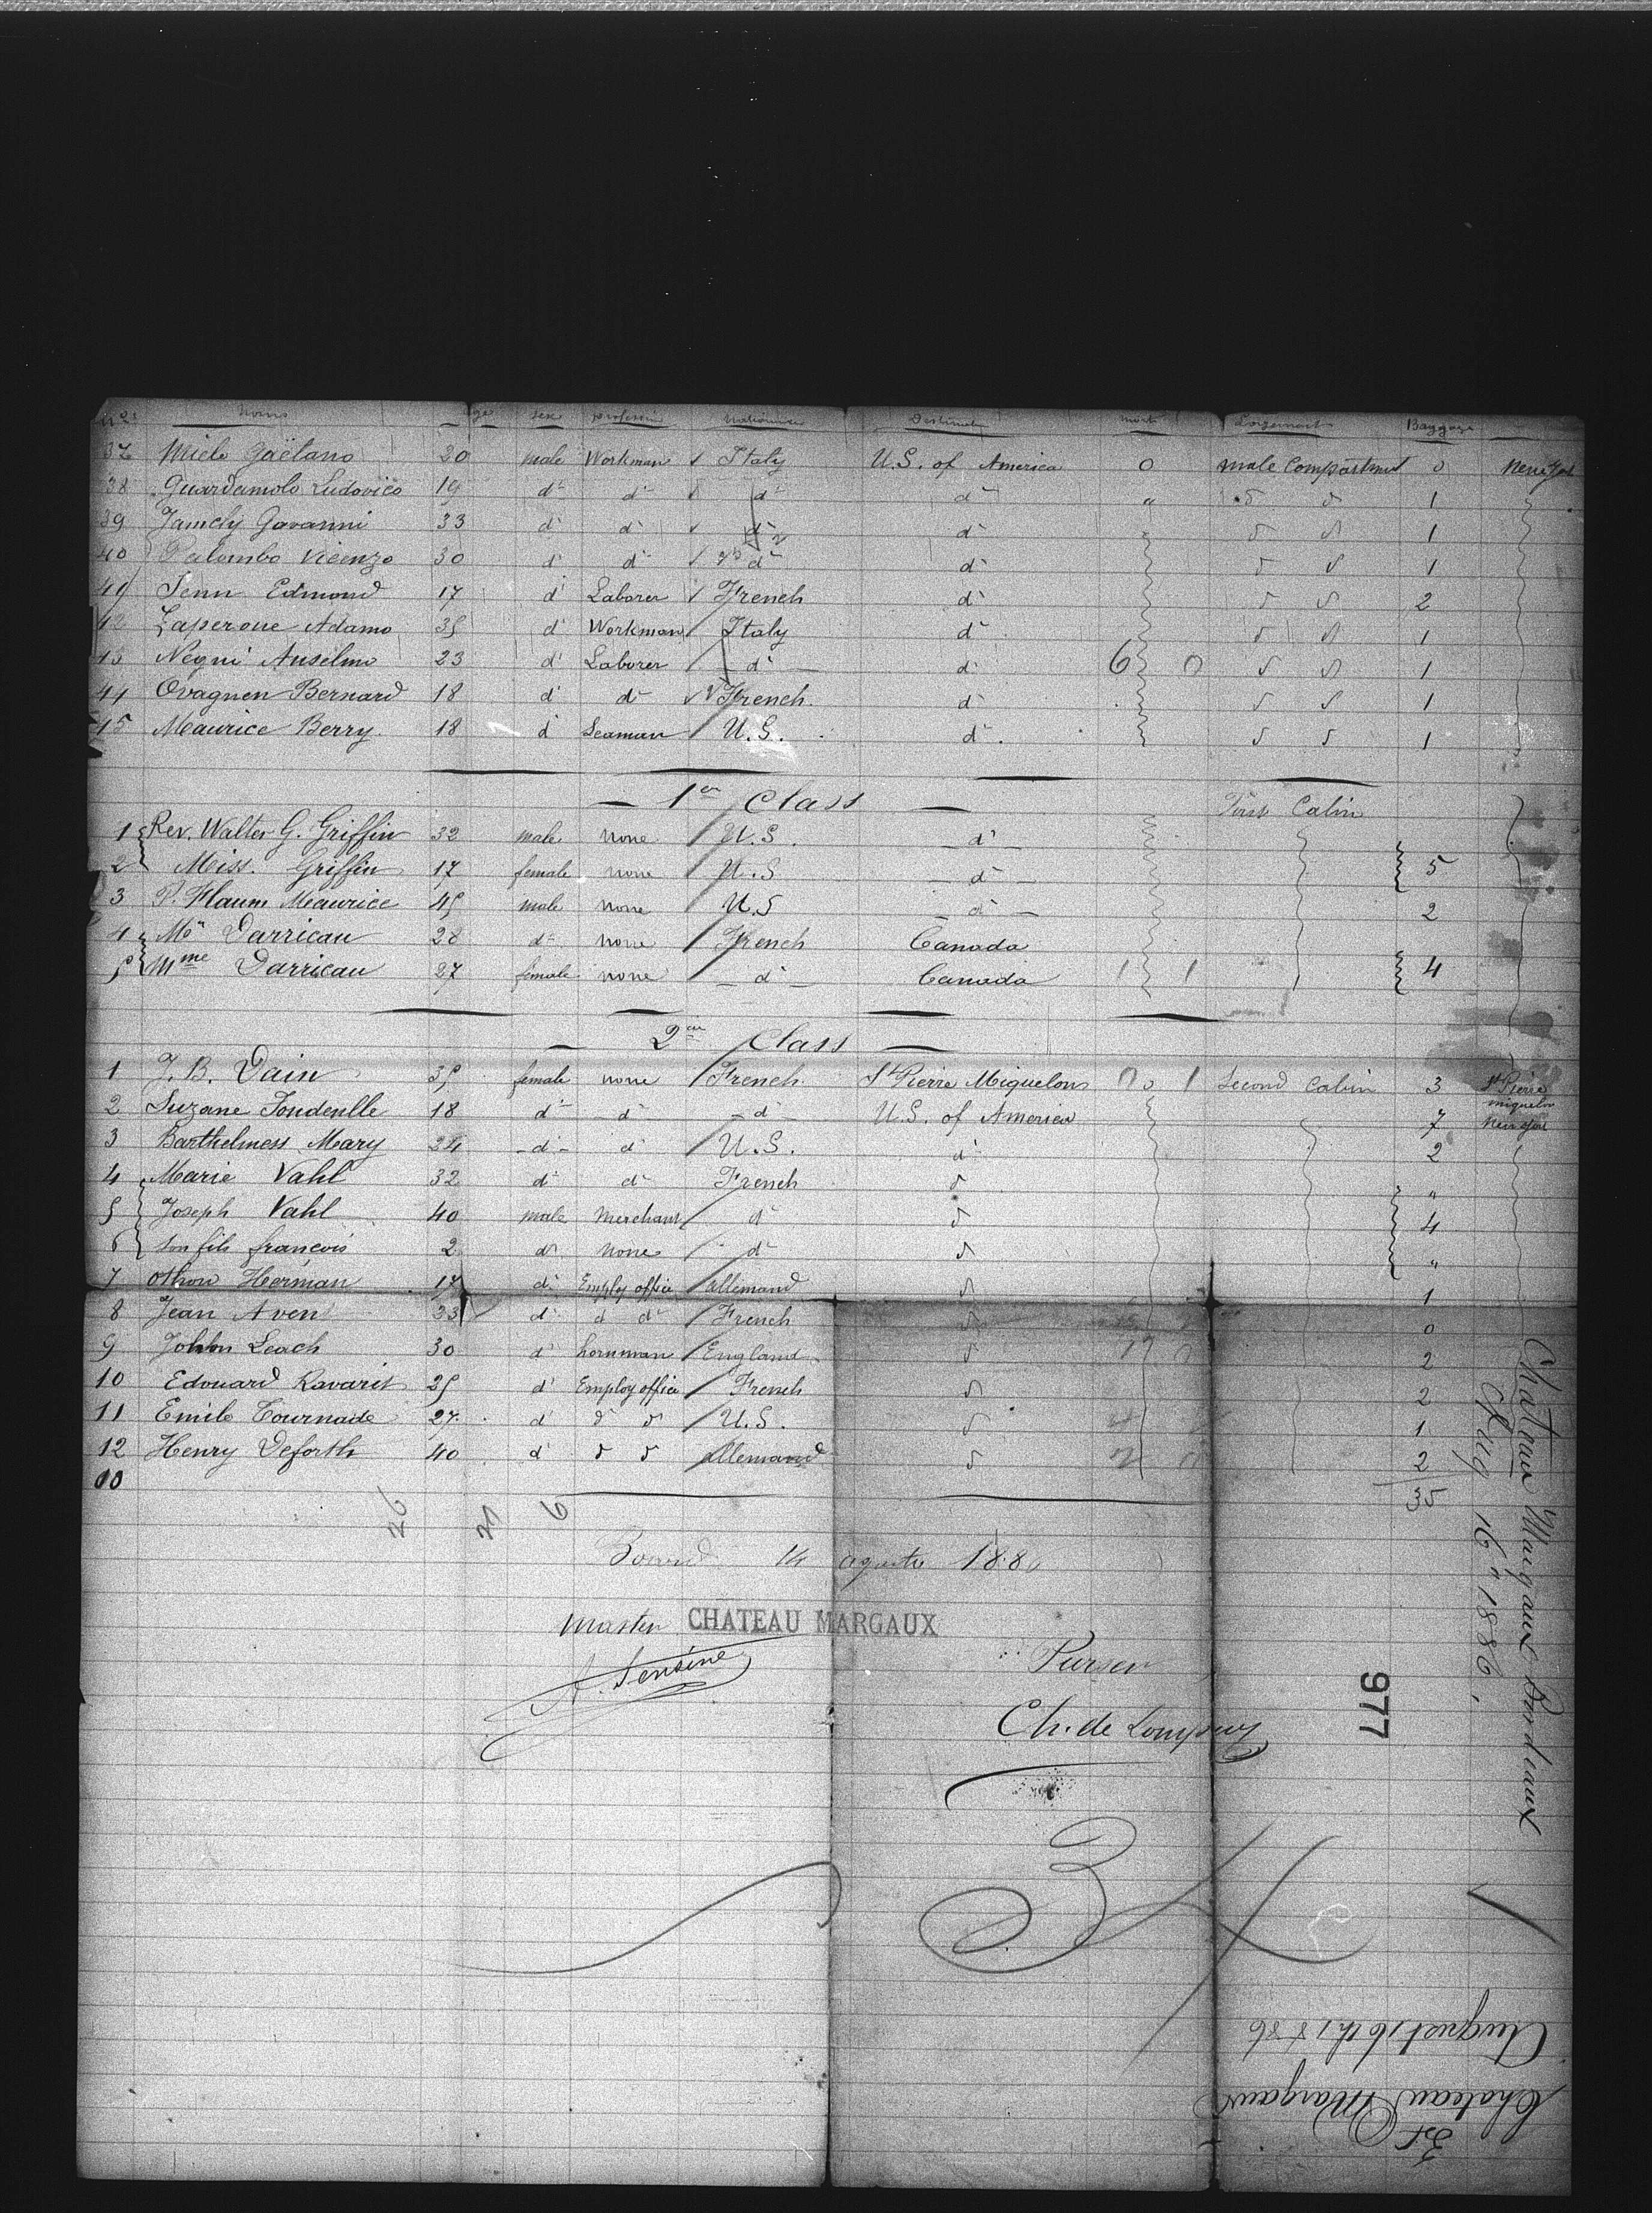 Nos Noms age sex profession nationa Destinat mort Logement Baggage
37 Miele Gaëtano 20 male Workman Italy U.S. of America 0 male Compartment 0 New York
38 Guardamolo Ludovico 19 d° d° d° d° " d° d° 1
39 Jamely Govanni 33 d° d° d° d° d° d° 1
40 Palombo Vicenzo 30 d° d° d° d° d° d° 1
41 Senn Edmond 17 d° Laborer French d° d° d° 2
42 Zaperoue Adamo 35 d° Workman Italy d° d° d° 1
43 Negni Anselmo 23 d° Laborer d° d° 6 0 d° d° 1
44 Ovagnen Bernard 18 d° d° French d° d° d° 1
45 Maurice Berry 18 d° Seaman U.S. d° d° d° 1
1er Class First Cabin
1 Rev. Walter G. Griffin 32 male none U.S. d°
2 Miss. Griffin 17 female none U.S d° 5
3 P. Flaum Maurice 45 male none U.S d° 2
4 Mr Darricau 28 d° none French Canada
5 Mme Darricau 27 female none d° Canada 1 1 4
2em Class
1 J. B. Dain 35 female none French St Pierre Miquelon 0 1 Second Cabin 3 St Pierre miquelon
2 Suzane Fondeulle 18 d° d° d° U.S. of America 7 New York
3 Barthelmess Mary 24 d° d° U.S. d° 2
4 Marie Vahl 32 d° d° French d° "
5 Joseph Vahl 40 male Merchant d° d° 4
6 son fils françois 2 d° none d° d° "
7 othow Herman 17 d° Employ office allemand d° 1
8 Jean Avent 33 d° d° d° French d° 0
9 John Leach 30 d° England d° 2
10 Edouard Ravarit 25 d° Employ office French d° 2
11 Emile Tournade 27 d° d° d° U.S. d° 1
12 Henry Deforth 40 d° d° d° allemand d° 2
10 35
26 21 6
14 1886
Master CHATEAU MARGAUX
A. Sensine
Purser
Ch. de
Chateau Margaux Bordeaux
Aug 16" 1886.
977
August 16th 1886
Chateau Margaux